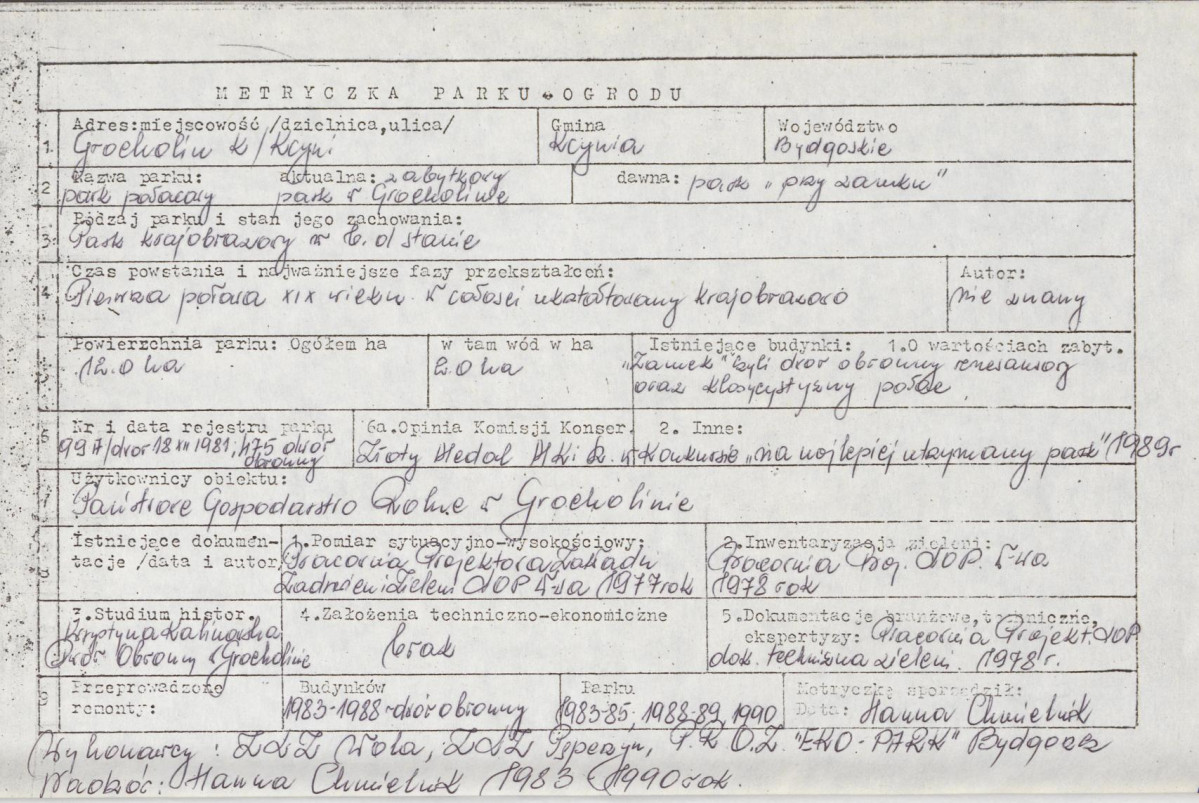 METRYCZKA PARKU-OGRODU
1. Adres:miejscowość/dzielnica,ulica/
Grocholin k/Kcyni
Gmina
Kcynia
Województwo
Bydgoskie
2 Nazwa parku: aktualna: zabytkowy
park pałacowy park w Grocholinie
dawna: park "przy zamku"
3. Rodzaj parku i stan jego zachowania:
Park krajobrazowy w b. d stanie
4. Czas powstania i najważniejsze fazy przekształceń:
Pierwsza połowa XIX wieku. W całości ukształtowany krajobrazowo
Autor:
nie znany
Powierzchnia parku: Ogółem ha
12.0 ha
w tam wód w ha
2.0 ha
Istniejące budynki: 1.O wartościach zabyt.
"Zamek" czyli dwór obronny renesansowy
oraz klasycystyczny pałac
6 Nr i data rejestru parku
99A/dwór 18 XII 1981, 475 dwór
obronny
6a.Opinia Komisji Konser. 2. Inne:
Złoty Medal MKiS. w Konkursie "na najlepiej utrzymany park" 1989r
7 Użytkownicy obiektu:
Państwowe Gospodarstwo Rolne w Grocholinie
8 Istniejące dokumen-
tacje /data i autor
1.Pomiar sytuacyjno-wysokościowy:
Pracownia Projektowa Zakładu
Zadrzewień i Zieleni WOP 1977 rok
2.Inwentaryzacja zieleni:
Pracownia Proj. WOP.
1978 rok
3.Studium histor.
Krystyna Kalinowska
Dwór Obronny w Grocholinie
4.Założenia techniczno-ekonomiczne
brak
5.Dokumentacje branżowe,techniczne,
ekspertyzy: Pracownia Projekt. WOP
dok. techniczna zieleni. 1978 r.
9 Przeprowadzone
remonty:
Budynków
1983-1988-dwór obronny
Parku
1983-85, 1988-89, 1990
Metryczkę sporządził:
Data: Hanna Chmielnik
Wykonawcy: ZZZ Wola, ZZZ Peperzyn, P.R.O.Z. "EKO-PARK" Bydgoszcz
Nadzór: Hanna Chmielnik 1983 - 1990 rok.